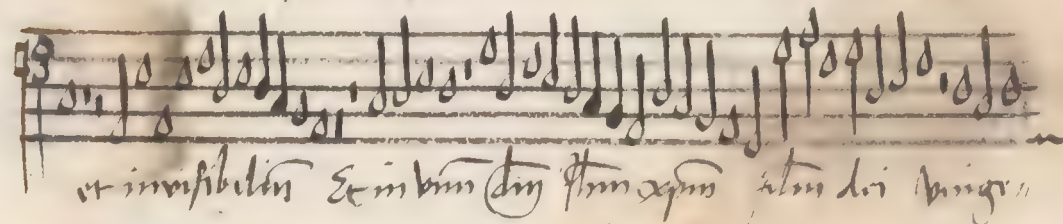 et invisibiliu͞ Et in vnu͞ dn͞m Jh͞m xp͞m filiu͞ dei vnige„